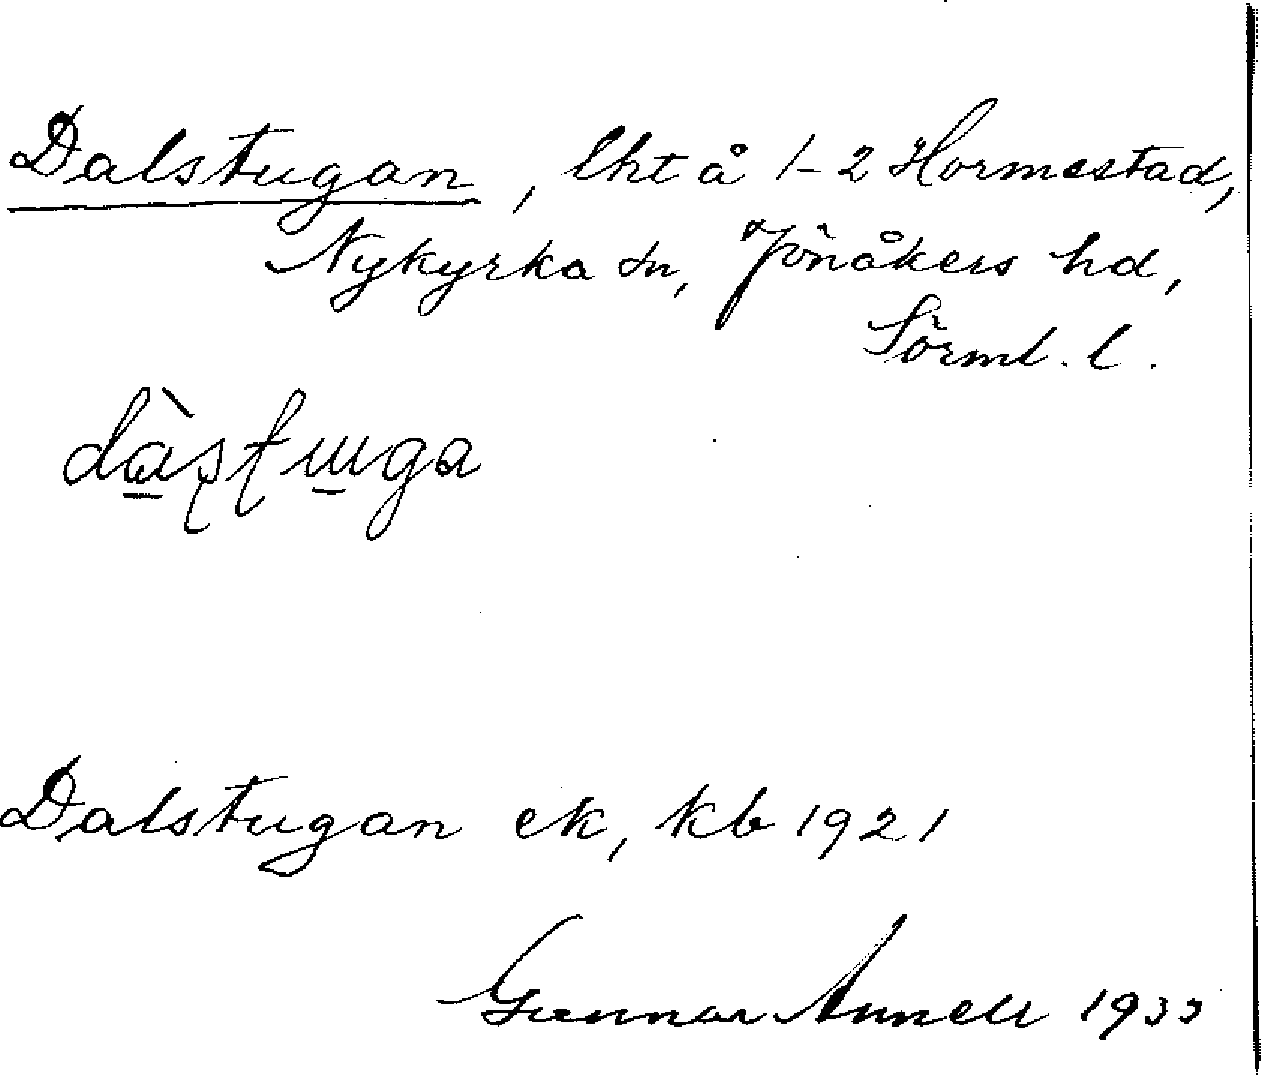 Dalstugan, lht å 1-2 Hormestad,
Nykyrka sn, Jönåkers hd,
Sörml. l.
dàʂʈɯga
Dalstugan ek, kb 1921
Gunnar Annell 1933